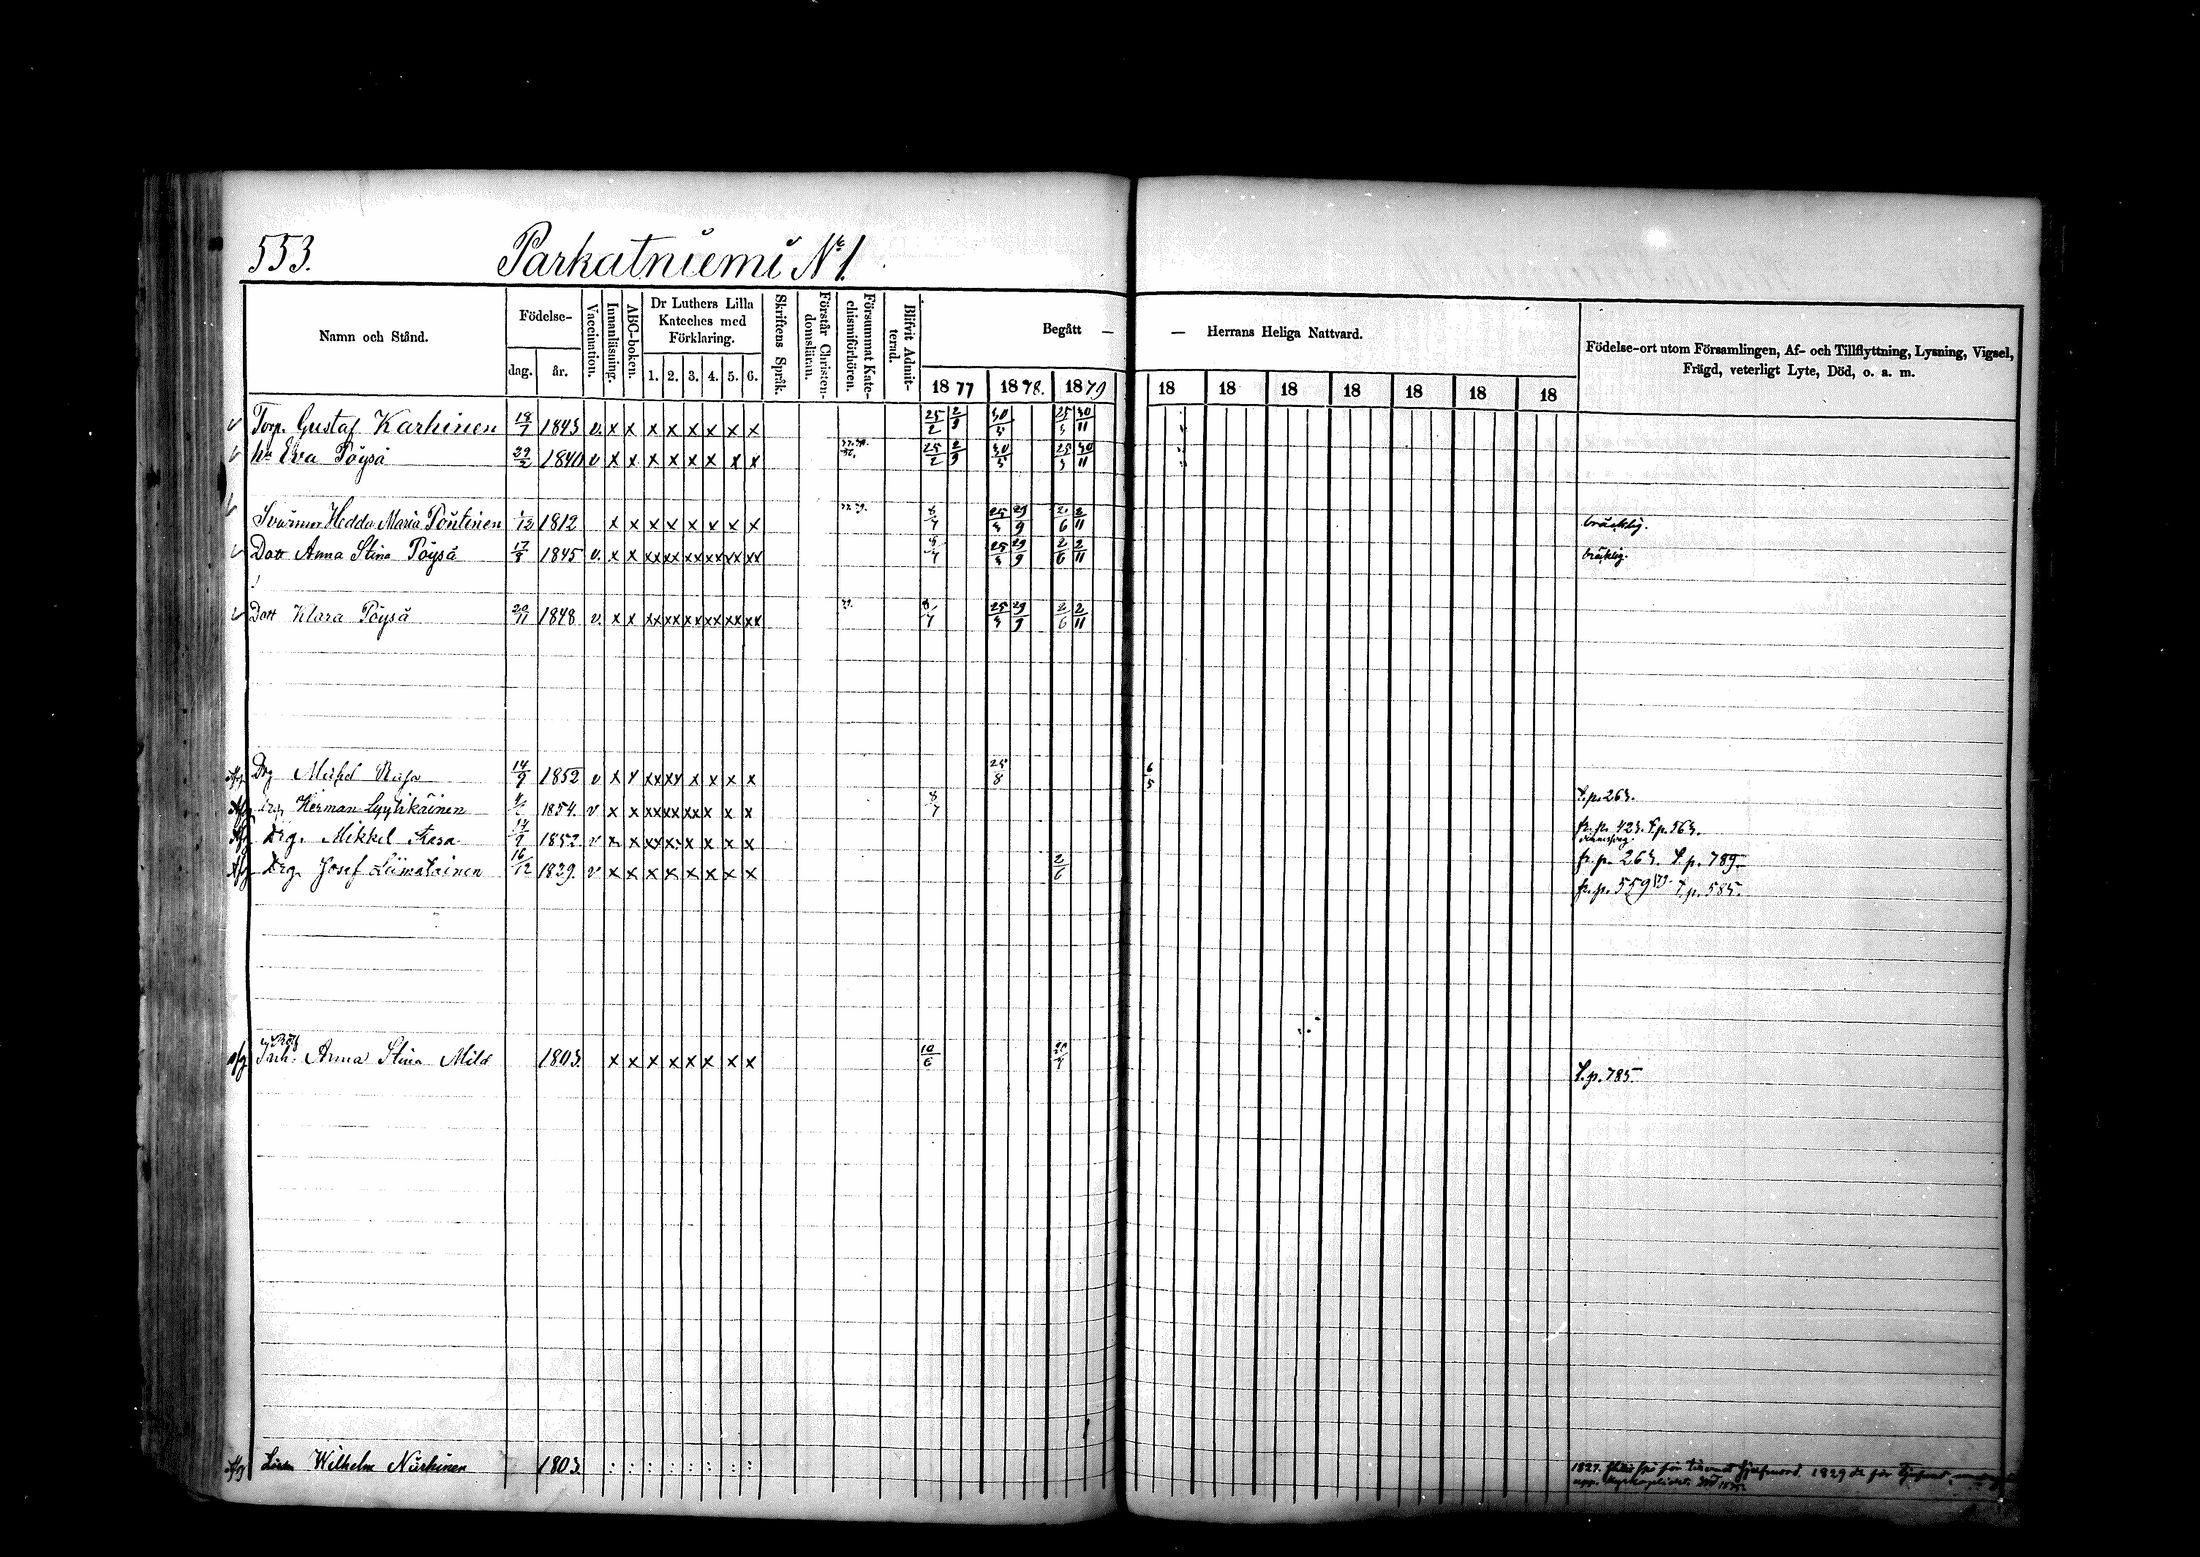 553. Parkatniemi No 1.
Namn och Stånd. Födelse- dag. år. Vaccination. Innanläsning. ABC-boken. Dr Luthers Lilla Kateches med Förklaring. 1. 2. 3. 4. 5. 6. Skriftens Språk. Förstår Christendomsläran. Försummat Katechismiförhören. Blifvit Admitterad. Begått — — Herrans Heliga Nattvard. Födelse-ort utom Församlingen, Af- och Tillflyttning, Lysning, Vigsel, Frägd, veterligt Lyte, Död, o. a. m.
1877 1878. 1879 18 18 18 18 18 18 18
Torp. Gustaf Karhinen 18/7 1843 v. x x x x x x x x 25/2 2/9 30/3 25/3 30/11
hu Eva Pöysä 29/2 1840 v x x x x x x x x 25/2 2/9 30/3 25/3 30/11
Svärmor Hedda Maria Pöntinen 1/12 1812 x x x x x x x x 8/7 25/3 29/9 2/6 2/11 bräcklig.
Dott Anna Stina Pöysä 17/8 1845 v. x x xx xx xx xx xx xx 8/7 25/3 29/9 2/6 2/11 bräcklig.
Dott Klara Pöysä 20/11 1848 v. x x xx xx xx xx xx xx 8/7 25/3 29/9 2/6 2/11
Drg Michel 14/9 1852 v x x xx xx x x x x 25/8 6/5
T. p. 263.
Herman Lyytikäinen 1854. v x x xx xx xx x x x 8/7
fr. p. 423. T. p. 563.
Drg. Mikkel Kasa 14/9 1852. v x x xx x x x x x
fr. p. 263. T. p. 789.
Drg. Josef Liimatainen 16/12 1829. v x x x x x x x x 2/6
fr. p. 559 T. p. 585.
Inh. Anna Stina Mild 1803. x x x x x x x x 10/6
T. p. 785.
Wilhelm Nürhinen 1803.
1827. för 1829 för